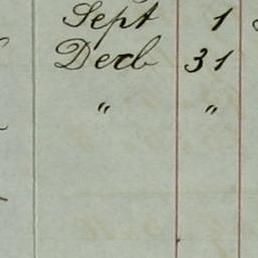 Sept 1
Decb 31
" "